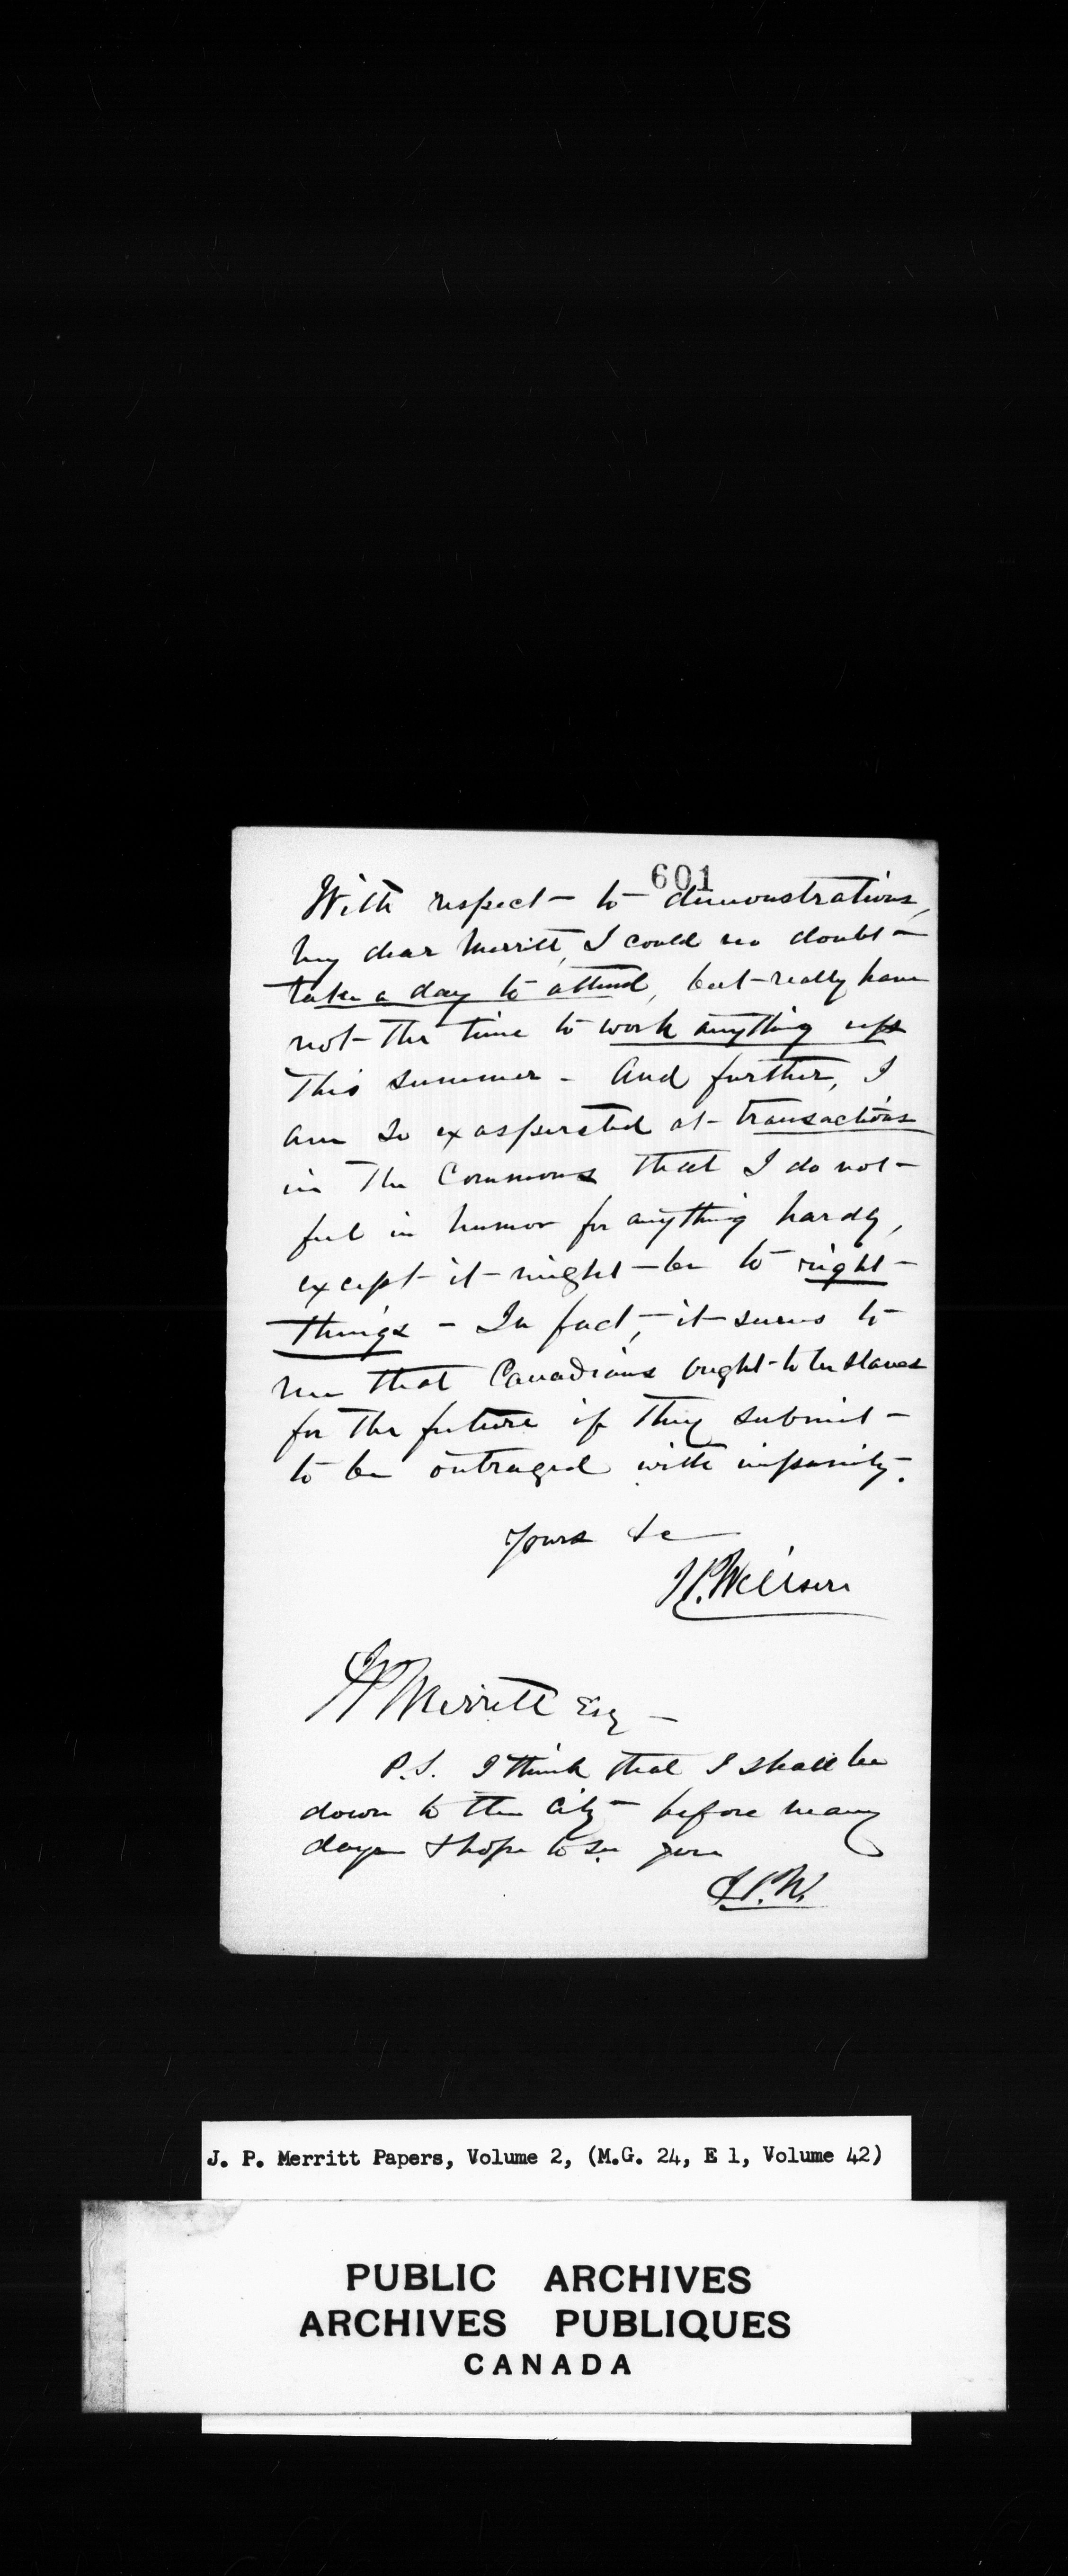 601
With respect to demonstrations,
my dear Merritt, I could no doubt
take a day to attend, but really have
not the time to work anything up
this summer - And further, I
am so exasperated at transactions
in the Commons that I do not
feel in humor for anything hardly,
except it might be to right
things - In fact, it seems to
me that Canadians ought to be slaves
for the future if they submit
to be outraged with impunity.
Yours &c
Willson
Merritt Esq
P.S. I think that I shall be
down to the City before many
days & hope to see you
W.
J. P. Merritt Papers, Volume 2, (M.G. 24, E 1, Volume 42)
PUBLIC ARCHIVES
ARCHIVES PUBLIQUES
CANADA